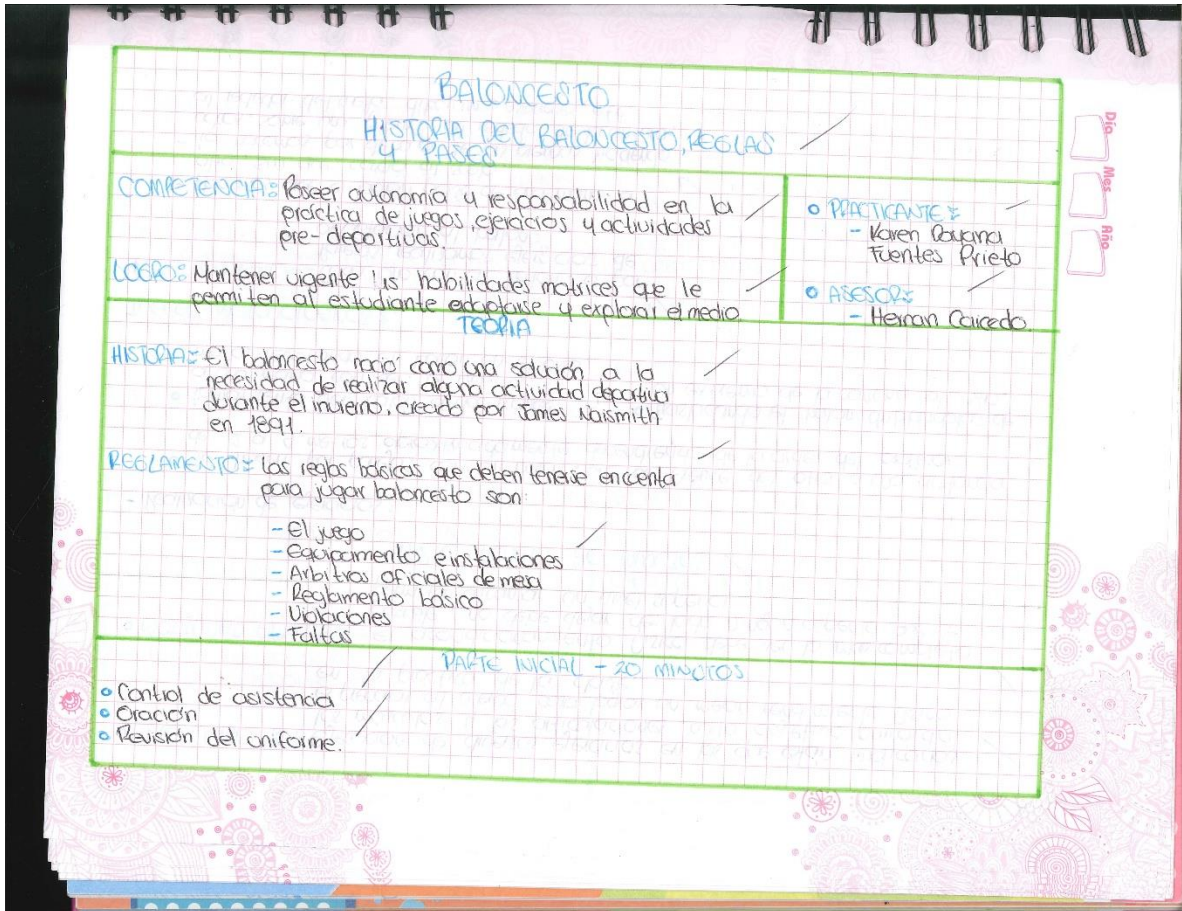 BALONCESTO
HISTORIA DEL BALONCESTO, REGLAS
Y PASES
COMPETENCIA: Poseer autonomía y responsabilidad en la
práctica de juegos, ejercicios y actividades
pre-deportivas.
LOGRO: Mantener vigente las habilidades motrices que le
permiten al estudiante adaptarse y explorar el medio
PRACTICANTE:
- Karen Dayana
Fuentes Prieto
ASESOR:
- Hernan Caicedo
TEORIA
HISTORIA: El baloncesto nació como una solución a la
necesidad de realizar alguna actividad deportiva
durante el invierno, creado por James Naismith
en 1891.
REGLAMENTO: Las reglas básicas que deben tenerse encuenta
para jugar baloncesto son:
- El juego
- Equipamento e instalaciones
- Arbitros oficiales de mesa
- Reglamento básico
- Violaciones
- Faltas
PARTE INICIAL - 20 MINUTOS
Control de asistencia
Oración
Revisión del uniforme.
Día
Mes
Año